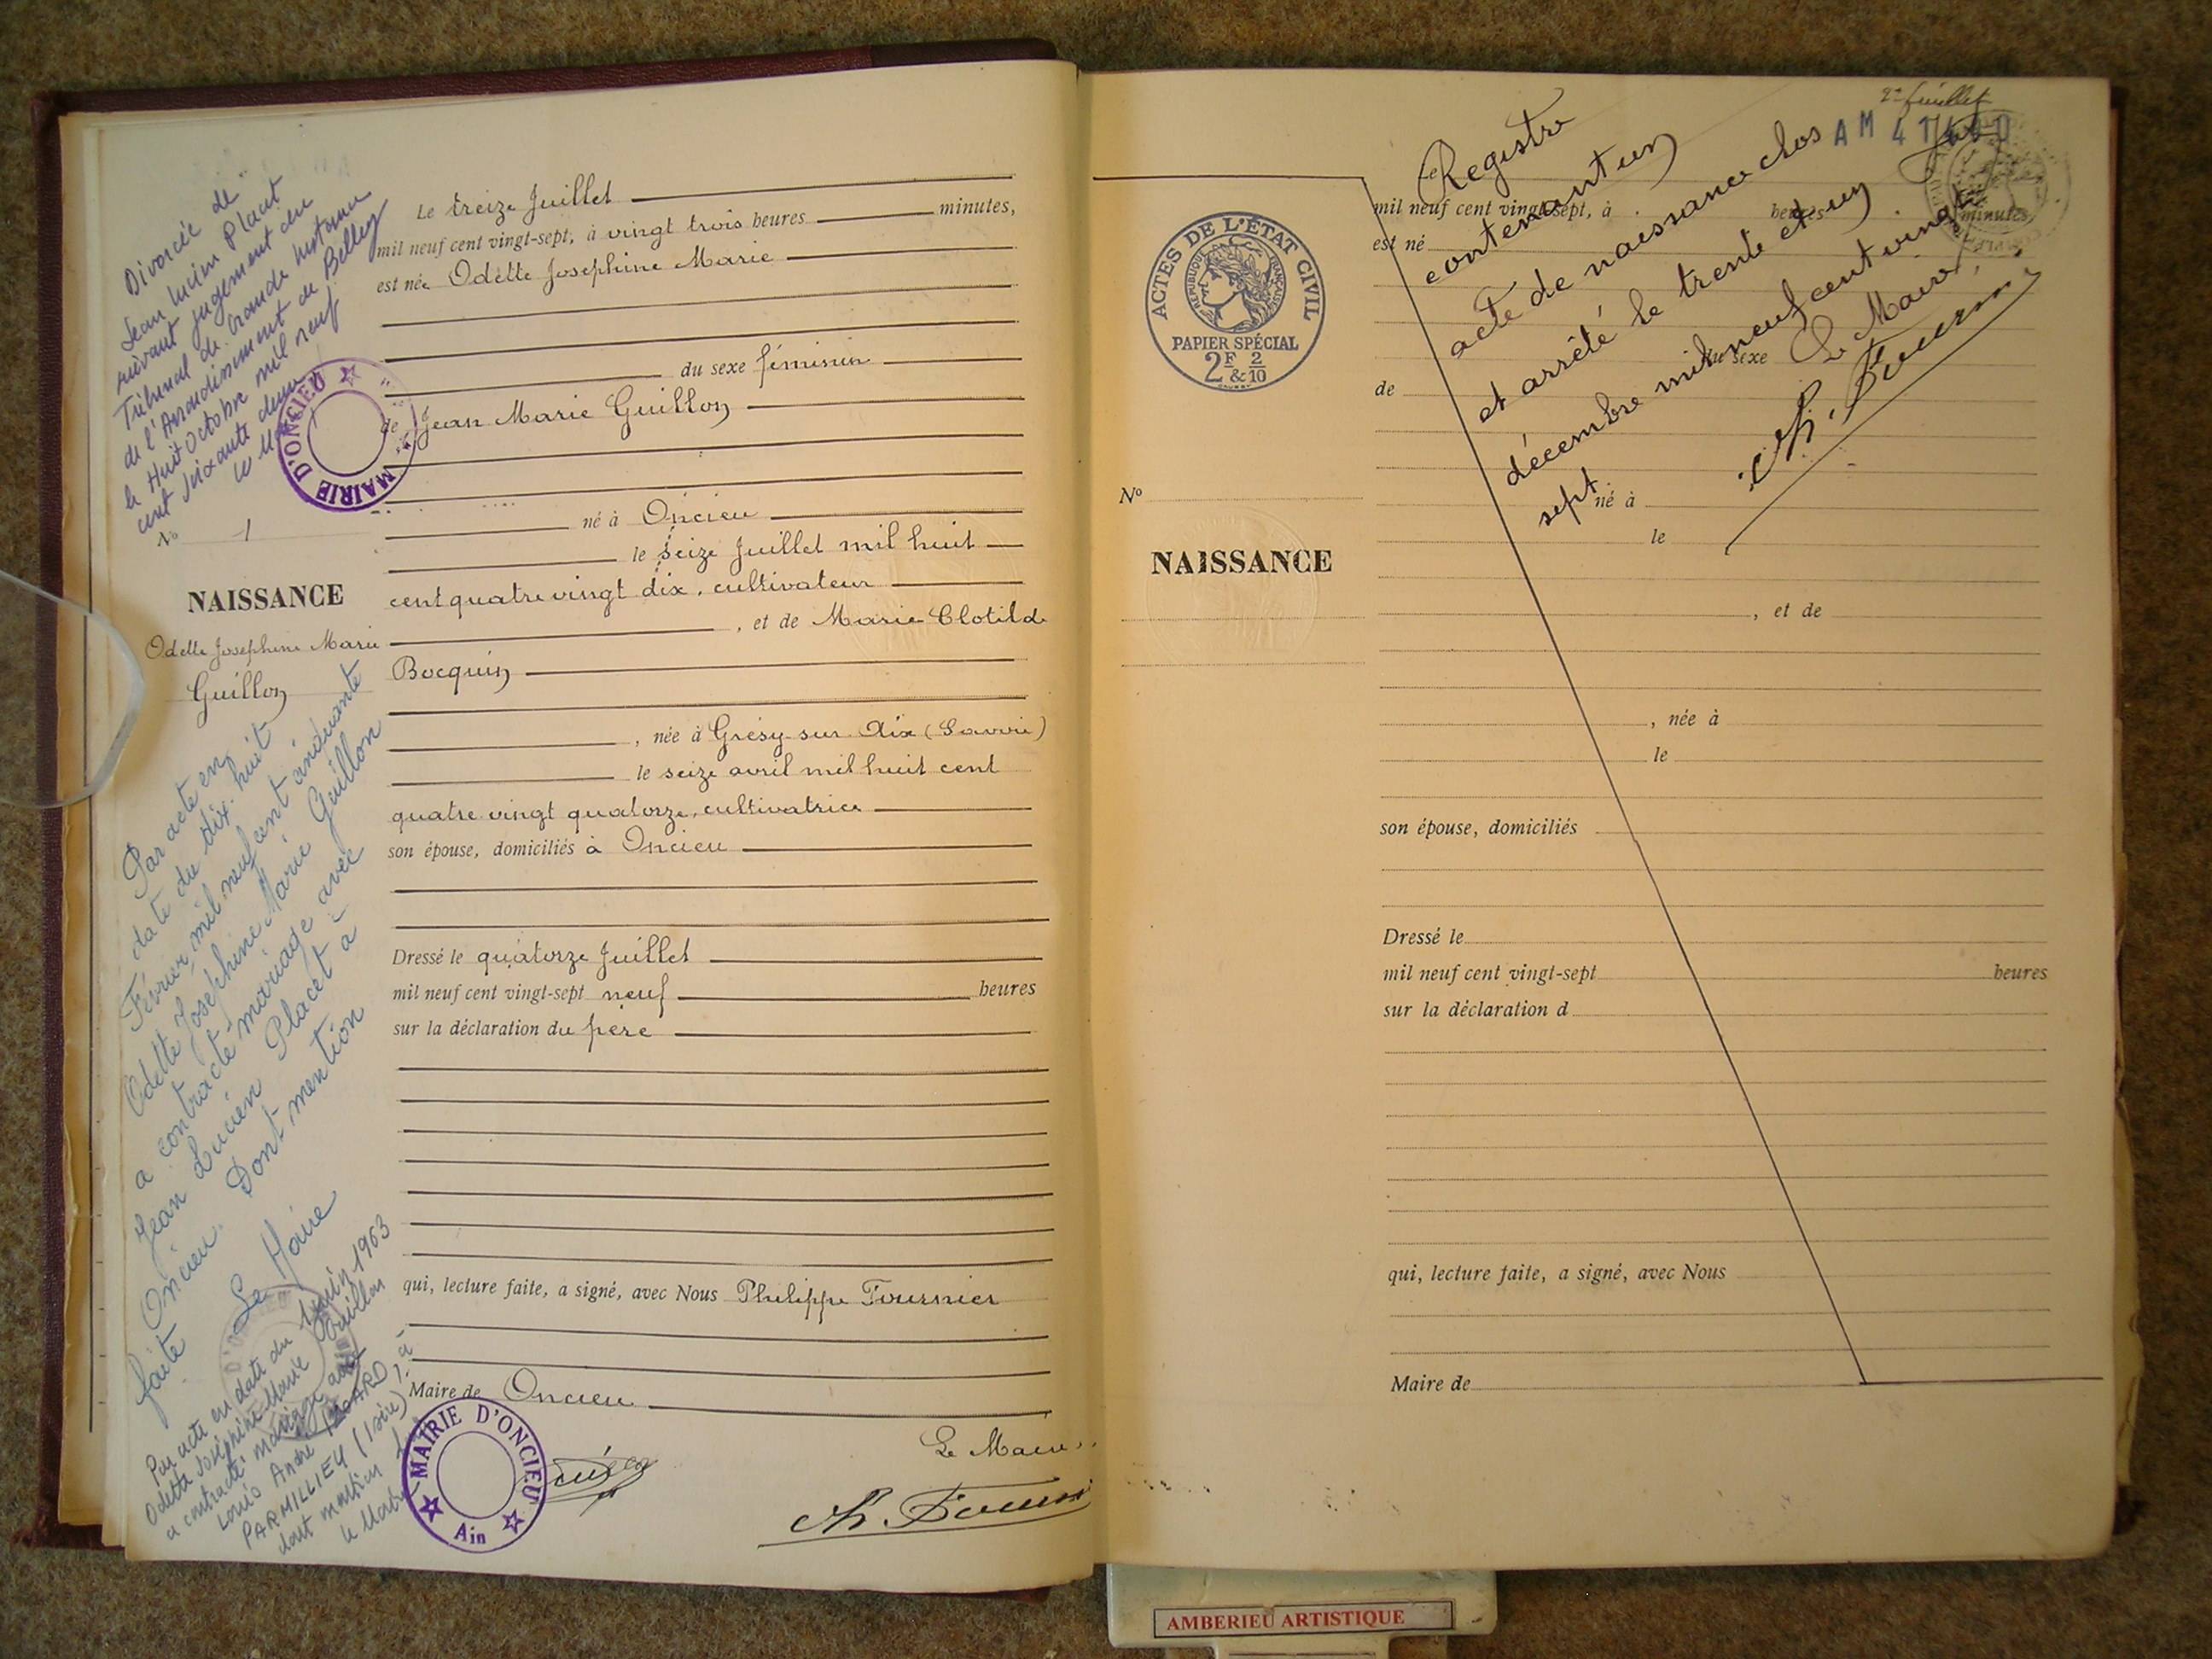 Divorcée de
Jean Lucien Placet
suivant jugement du
Tribunal de Grande Instance
de l'Arrondissement de Belley
le Huit Octobre mil neuf
cent soixante deux
Le Maire
MAIRIE D'ONCIEU
No 1
NAISSANCE
Odette Josephine Marie
Guillon
Par acte en
date du dix-huit
Février mil neuf cent cinquante
Odette Joséphine Marie Guillon
a contracté mariage avec
Jean Lucien Placet à
Oncieu. Dont mention
faite
Le Maire
Par acte en date du 1963
Odette Joséphine Marie Guillon
a contracté mariage avec
Louis André
PARMILLIEU (Isère),
dont mention
Le treize Juillet
mil neuf cent vingt-sept, à vingt trois heures minutes,
est née Odette Josephine Marie
du sexe féminin
de Jean Marie Guillon
né à Oncieu
le seize Juillet mil huit
cent quatre vingt dix, cultivateur
, et de Marie Clotilde
Bocquin
, née à Grésy-sur-Aix (Savoie)
le seize avril mil huit cent
quatre vingt quatorze, cultivatrice
son épouse, domiciliés à Oncieu
Dressé le quatorze Juillet
mil neuf cent vingt-sept neuf heures
sur la déclaration du père
qui, lecture faite, a signé, avec Nous Philippe Fournier
Maire de Oncieu
MAIRIE D'ONCIEU
Ain
Le Maire
Ph. Fournier
2e feuillet
AM
ACTES DE L'ÉTAT CIVIL
RÉPUBLIQUE FRANÇAISE
PAPIER SPÉCIAL
2F & 2/10
No
NAISSANCE
Le
mil neuf cent vingt-sept, à heures minutes,
est né
du sexe
de
né à
le
, et de
, née à
le
son épouse, domiciliés
Dressé le
mil neuf cent vingt-sept heures
sur la déclaration d
qui, lecture faite, a signé, avec Nous
Maire de
Registre
contenant un
acte de naissance clos
et arrêté le trente et un
décembre mil neuf cent vingt
sept
Le Maire,
Ph. Fournier
AMBERIEU ARTISTIQUE